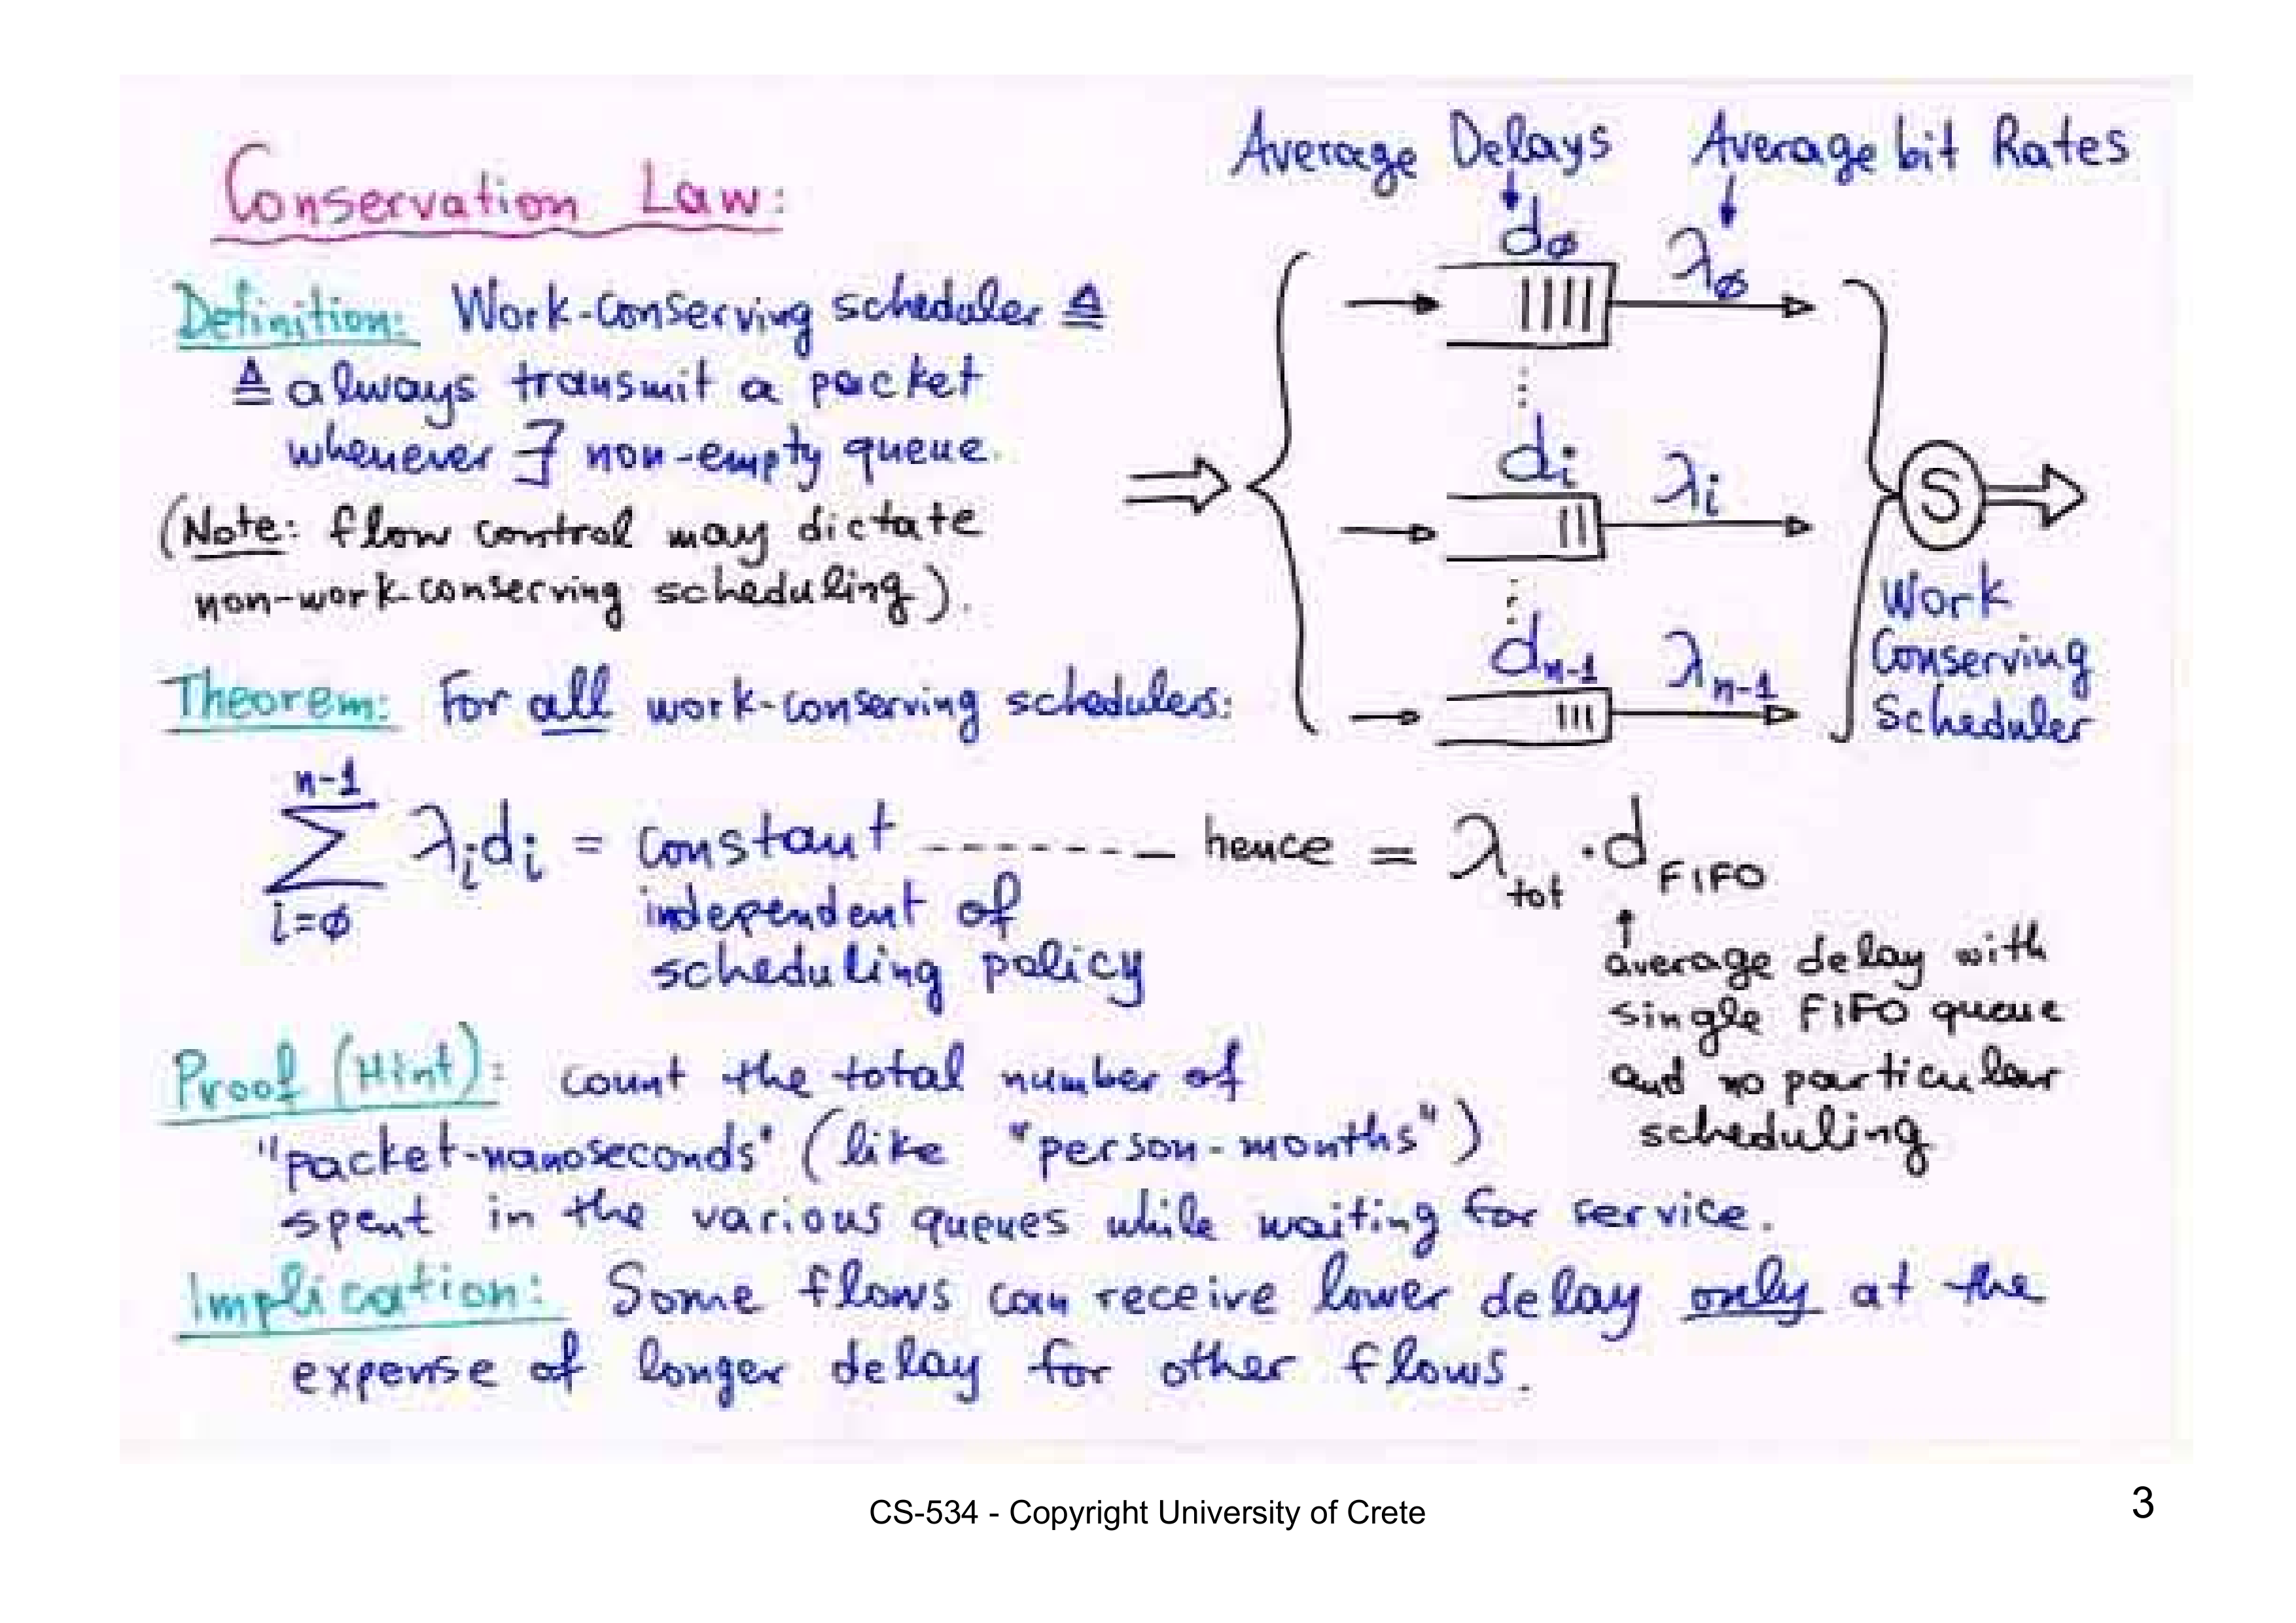 Conservation Law:
Definition: Work-Conserving scheduler ≜
≜ always transmit a packet
whenever ∃ non-empty queue.
(Note: flow control may dictate
non-work-conserving scheduling).
Average Delays Average bit Rates
d∅ λ∅
di λi
dn-1 λn-1
S
Work
Conserving
Scheduler
Theorem: For all work-conserving schedulers:
n-1
∑ λidi = constant ------- hence = λtot · dFIFO
i=∅
independent of
scheduling policy
average delay with
single FIFO queue
and no particular
scheduling
Proof (Hint): count the total number of
"packet-nanoseconds" (like "person-months")
spent in the various queues while waiting for service.
Implication: Some flows can receive lower delay only at the
expense of longer delay for other flows.
CS-534 - Copyright University of Crete
3